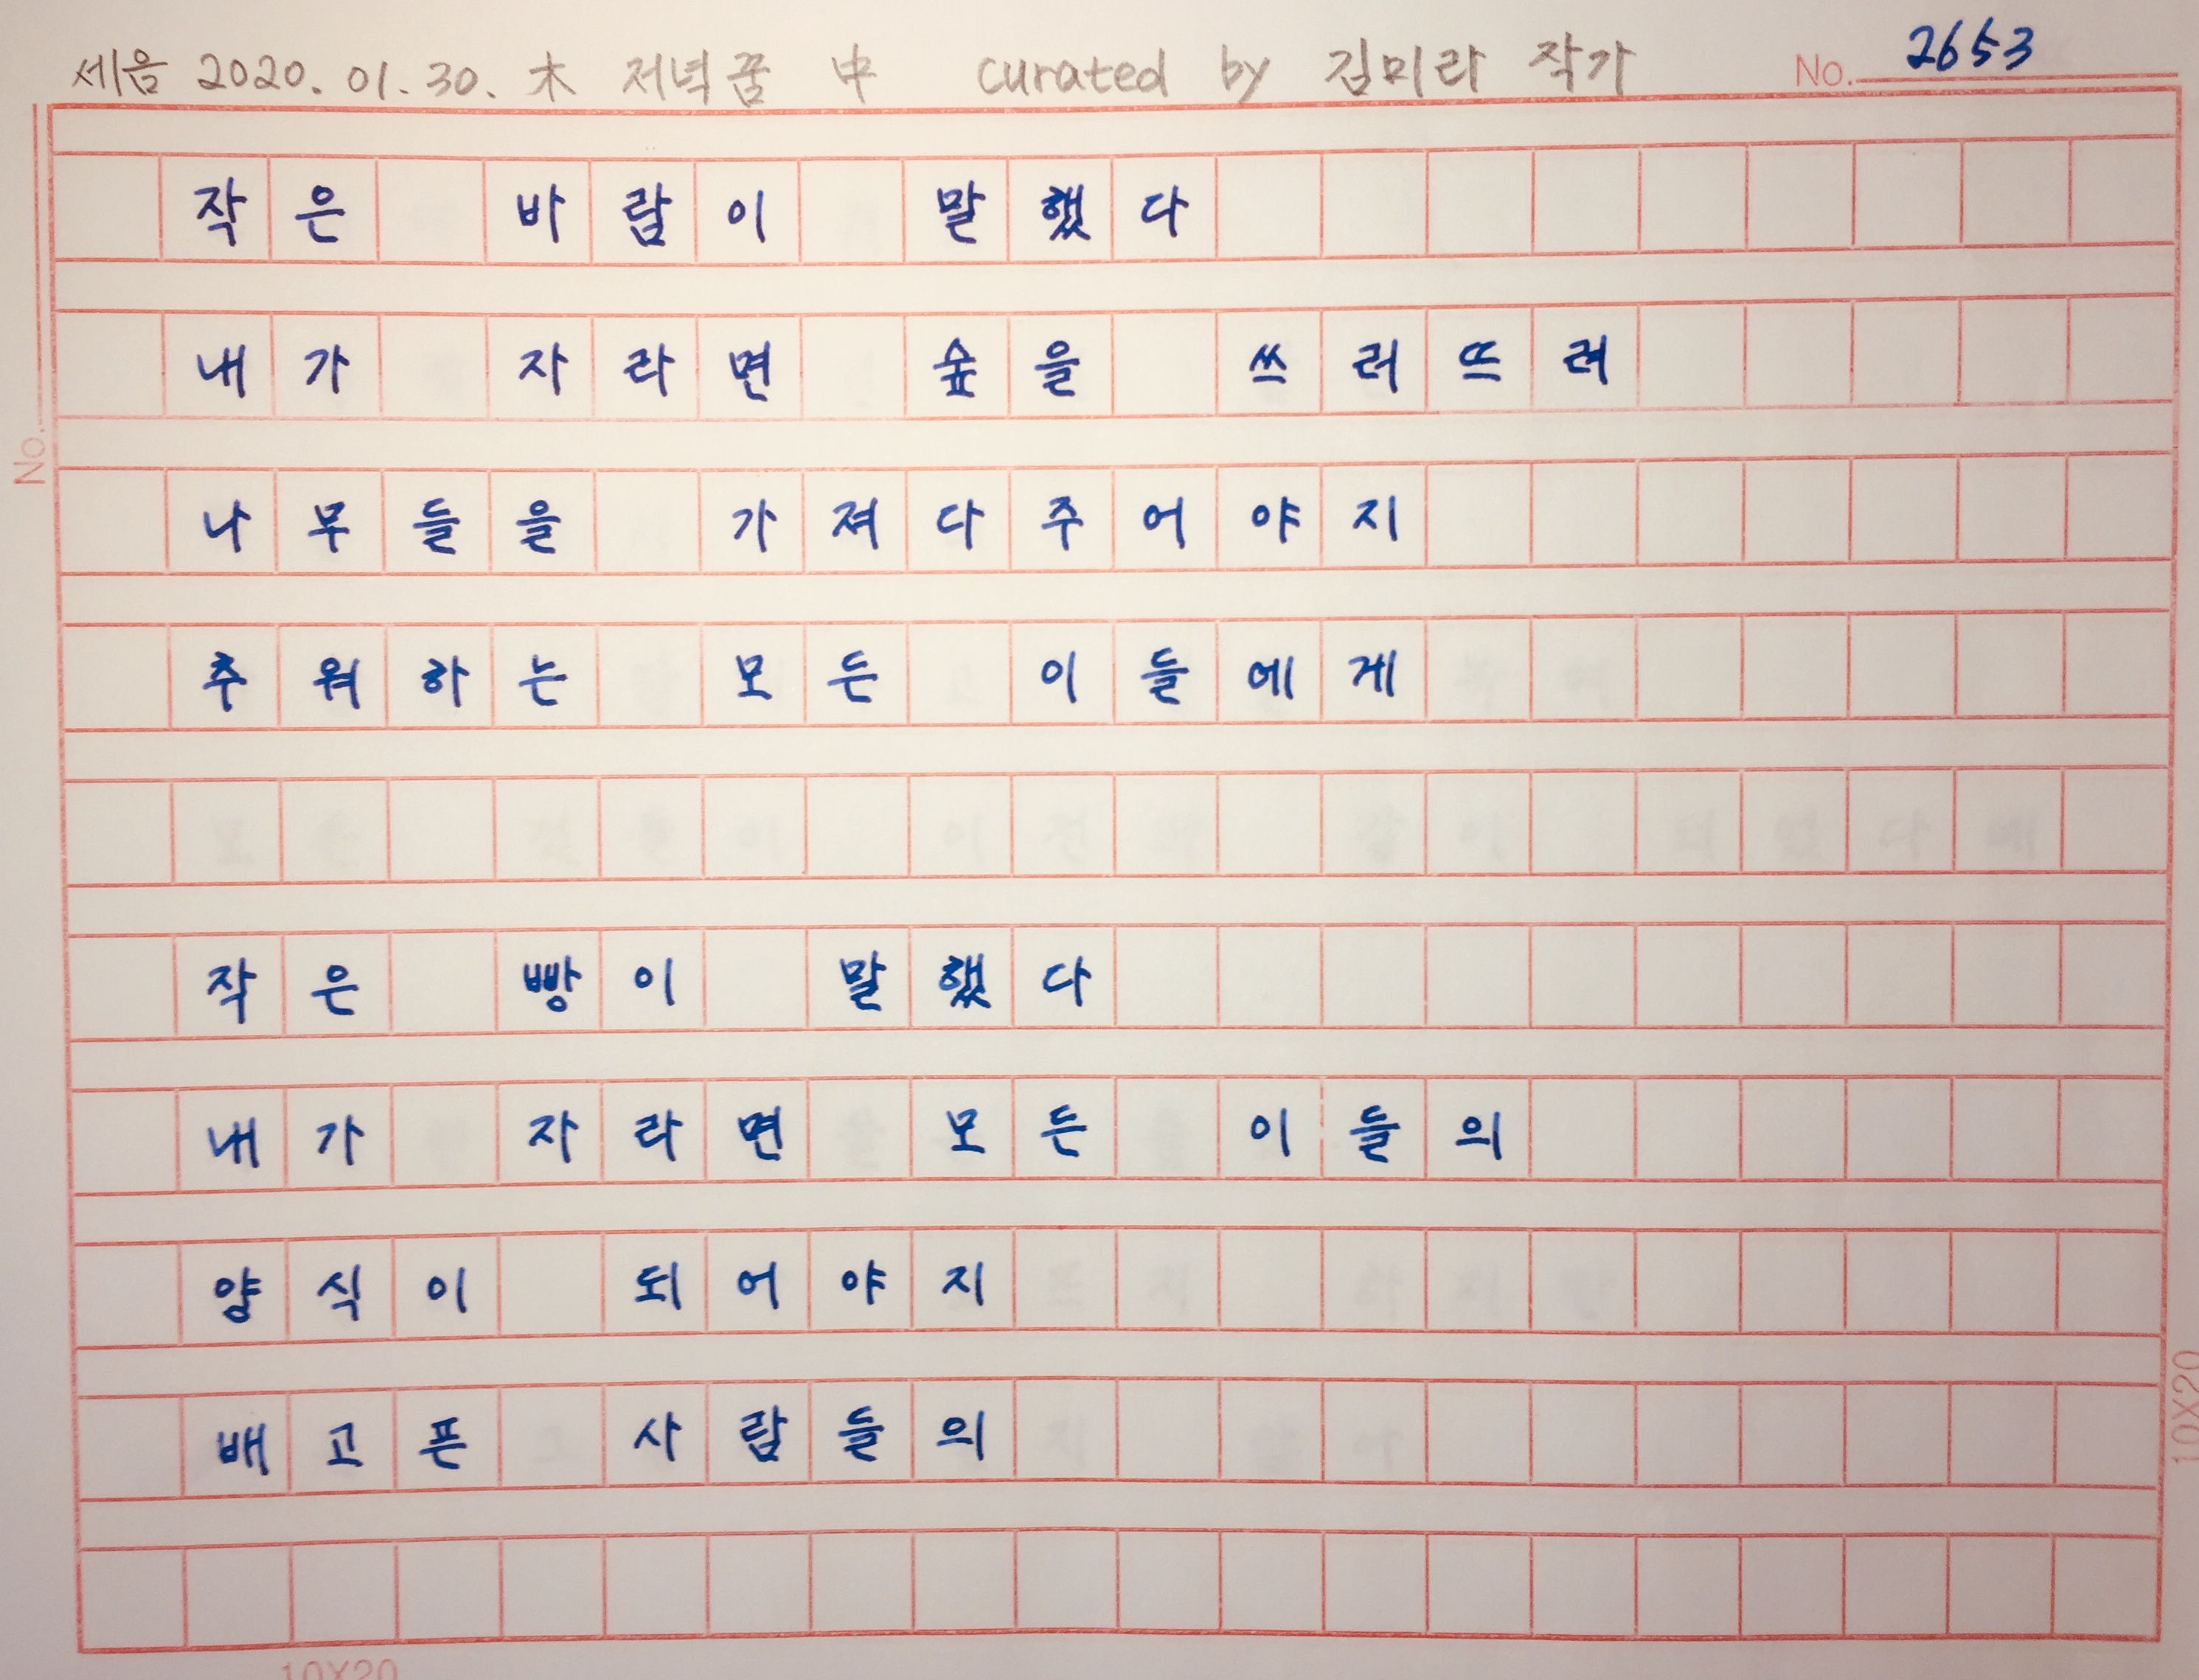 세음 2020. 01. 30. 木 저녁꿈 中 curated by 김미라 작가 No. 2653
작은 바람이 말했다
내가 자라면 숲을 쓰러뜨려
나무들을 가져다주어야지
추워하는 모든 이들에게
작은 빵이 말했다
내가 자라면 모든 이들의
양식이 되어야지
배고픈 사람들의
No.
10X20
10X20